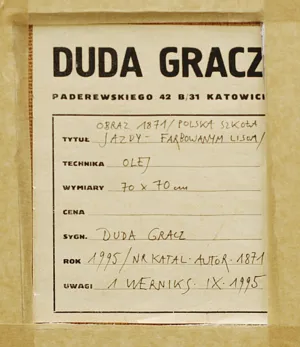 DUDA GRACZ
PADEREWSKIEGO 42 B/31 KATOWICI
OBRAZ 1871/POLSKA SZKOŁA
TYTUŁ JAZDY - FARBOWANYM LISEM/
TECHNIKA OLEJ
WYMIARY 70 x 70 cm
CENA
SYGN. DUDA GRACZ
ROK 1995/NR KATAL. AUTOR. 1871
UWAGI 1 WERNIKS. IX. 1995